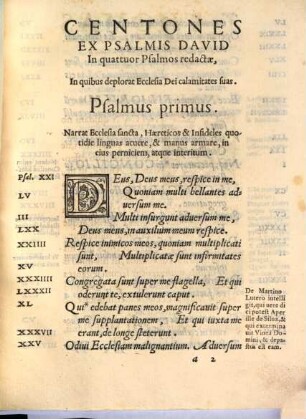 CENTONES
EX PSALMIS DAVID
In quattuor Psalmos redactæ,
In quibus deplorat Ecclesia Dei calamitates suas.
Psalmus primus.
Narrat Ecclesia sancta, Hæreticos & Infideles quo-
tidie linguas acuere, & manus armare, in
eius perniciem, atque interitum.
Psal. XXI DEus, Deus meus, respice in me,
LV Quoniam multi bellantes ad
uersum me.
III Multi insurgunt aduersum me,
LXX Deus meus, in auxilium meum respice.
XXIIII Respice inimicos meos, quoniam multiplicati
sunt, Multiplicatæ sunt infirmitates
XV eorum.
XXXIIII Congregata sunt super me flagella, Et qui
LXXXII oderunt te, extulerunt caput.
XL Qui edebat panes meos, magnificauit super
me supplantationem, Et qui iuxta me
XXXVII erant, de longe steterunt.
XXV Odiui Ecclesiam malignantium. Aduersum
De Martino
Lutero intelli
gi, qui
uersa
a 2